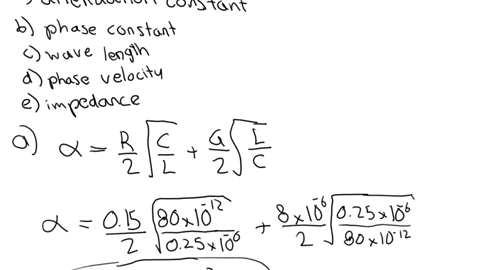 attenuation constant
b) phase constant
c) wave length
d) phase velocity
e) impedance
a) α = R/2 √(C/L) + G/2 √(L/C)
α = 0.15/2 √(80×10⁻¹²/0.25×10⁻⁶) + 8×10⁻⁶/2 √(0.25×10⁻⁶/80×10⁻¹²)